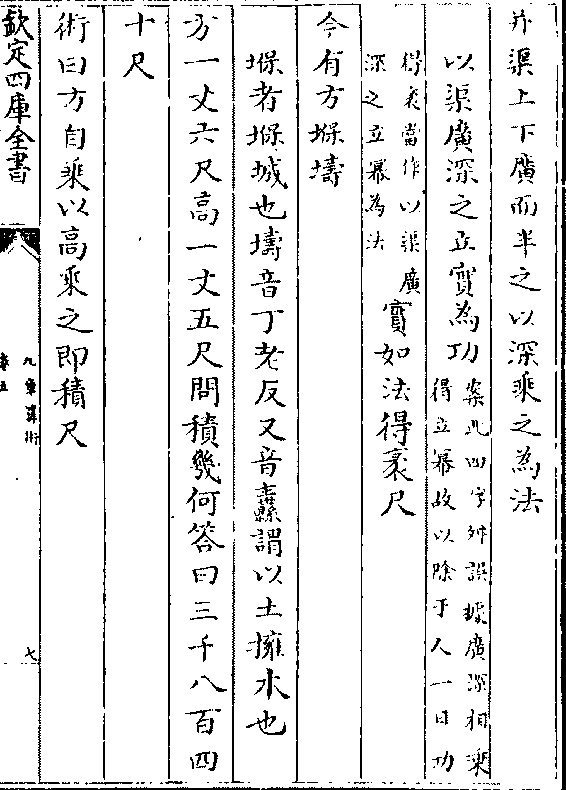 并渠上下廣而半之以深乘之為法
以渠廣深之立實為功案此四字舛誤據廣深相乘得立冪故以除于人一日功
得袤當作以渠廣深之立冪為法實如法得袤尺
今有方堢壔
堢者堢城也壔音丁老反又音纛謂以土擁水也
方一丈六尺高一丈五尺問積幾何答曰三千八百四
十尺
術曰方自乘以高乘之即積尺
欽定四庫全書
九章算術
卷五
七